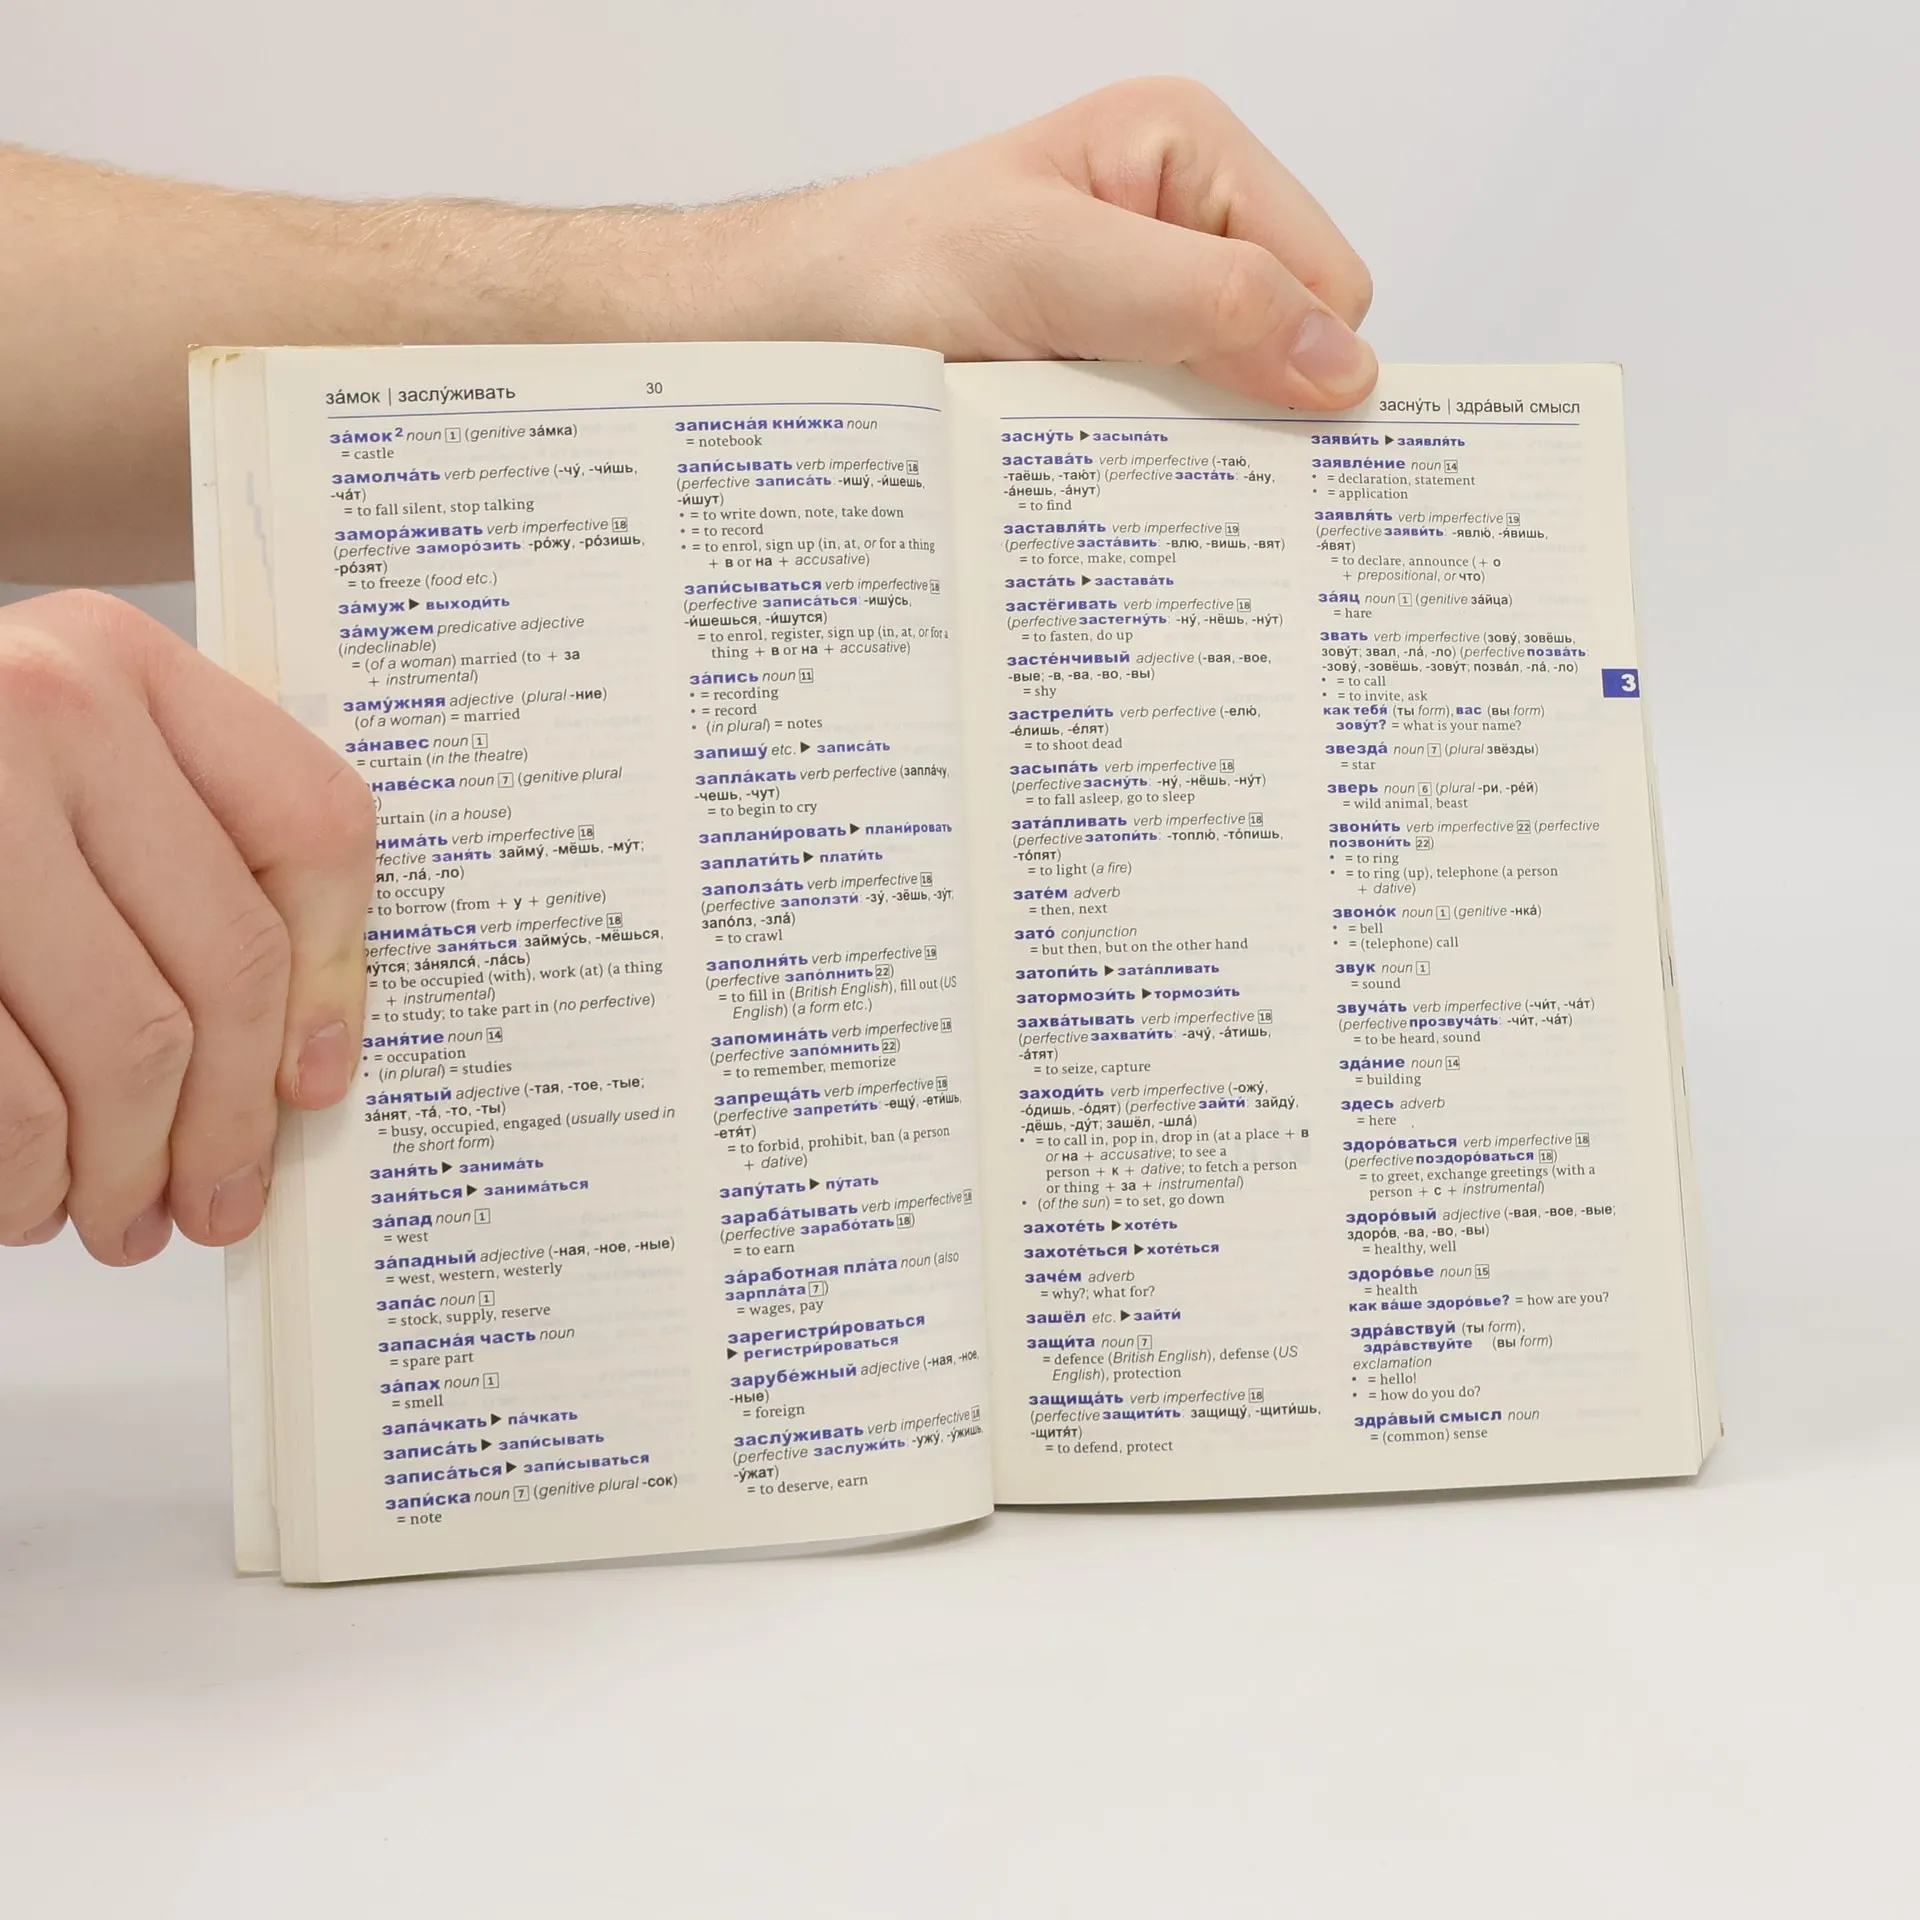 за́мок | заслу́живать
30
за́мок² noun 1 (genitive за́мка)
= castle
замолча́ть verb perfective (-чу́, -чи́шь,
-ча́т)
= to fall silent, stop talking
замора́живать verb imperfective 18
(perfective заморо́зить: -ро́жу, -ро́зишь,
-ро́зят)
= to freeze (food etc.)
за́муж ▶ выходи́ть
за́мужем predicative adjective
(indeclinable)
= (of a woman) married (to + за
+ instrumental)
заму́жняя adjective (plural -ние)
(of a woman) = married
за́навес noun 1
= curtain (in the theatre)
наве́ска noun 7 (genitive plural
curtain (in a house)
нима́ть verb imperfective 18
fective заня́ть: займу́, -мёшь, -му́т;
ял, -ла́, -ло)
to occupy
= to borrow (from + у + genitive)
анима́ться verb imperfective 18
perfective заня́ться: займу́сь, -мёшься,
му́тся; за́нялся́, -ла́сь)
= to be occupied (with), work (at) (a thing
+ instrumental)
= to study; to take part in (no perfective)
заня́тие noun 14
• = occupation
• (in plural) = studies
за́нятый adjective (-тая, -тое, -тые;
за́нят, -та́, -то, -ты)
= busy, occupied, engaged (usually used in
the short form)
заня́ть ▶ занима́ть
заня́ться ▶ занима́ться
за́пад noun 1
= west
за́падный adjective (-ная, -ное, -ные)
= west, western, westerly
запа́с noun 1
= stock, supply, reserve
запасна́я часть noun
= spare part
за́пах noun 1
= smell
запа́чкать ▶ па́чкать
записа́ть ▶ запи́сывать
записа́ться ▶ запи́сываться
запи́ска noun 7 (genitive plural -сок)
= note
записна́я кни́жка noun
= notebook
запи́сывать verb imperfective 18
(perfective записа́ть: -ишу́, -и́шешь,
-и́шут)
• = to write down, note, take down
• = to record
• = to enrol, sign up (in, at, or for a thing
+ в or на + accusative)
запи́сываться verb imperfective 18
(perfective записа́ться: -ишу́сь,
-и́шешься, -и́шутся)
= to enrol, register, sign up (in, at, or for a
thing + в or на + accusative)
за́пись noun 11
• = recording
• = record
• (in plural) = notes
запишу́ etc. ▶ записа́ть
запла́кать verb perfective (запла́чу,
-чешь, -чут)
= to begin to cry
заплани́ровать ▶ плани́ровать
заплати́ть ▶ плати́ть
заполза́ть verb imperfective 18
(perfective заползти́: -зу́, -зёшь, -зу́т;
запо́лз, -зла́)
= to crawl
заполня́ть verb imperfective 19
(perfective запо́лнить 22)
= to fill in (British English), fill out (US
English) (a form etc.)
запомина́ть verb imperfective 18
(perfective запо́мнить 22)
= to remember, memorize
запреща́ть verb imperfective 18
(perfective запрети́ть: -ещу́, -ети́шь,
-етя́т)
= to forbid, prohibit, ban (a person
+ dative)
запу́тать ▶ пу́тать
зараба́тывать verb imperfective 18
(perfective зарабо́тать 18)
= to earn
за́работная пла́та noun (also
зарпла́та 7)
= wages, pay
зарегистри́роваться
▶ регистри́роваться
зарубе́жный adjective (-ная, -ное,
-ные)
= foreign
заслу́живать verb imperfective 18
(perfective заслужи́ть: -ужу́, -у́жишь,
-у́жат)
= to deserve, earn
засну́ть | здра́вый смысл
засну́ть ▶ засыпа́ть
застава́ть verb imperfective (-таю́,
-таёшь, -таю́т) (perfective заста́ть: -а́ну,
-а́нешь, -а́нут)
= to find
заставля́ть verb imperfective 19
(perfective заста́вить: -влю, -вишь, -вят)
= to force, make, compel
заста́ть ▶ застава́ть
застёгивать verb imperfective 18
(perfective застегну́ть: -ну́, -нёшь, -ну́т)
= to fasten, do up
засте́нчивый adjective (-вая, -вое,
-вые; -в, -ва, -во, -вы)
= shy
застрели́ть verb perfective (-елю́,
-е́лишь, -е́лят)
= to shoot dead
засыпа́ть verb imperfective 18
(perfective засну́ть: -ну́, -нёшь, -ну́т)
= to fall asleep, go to sleep
зата́пливать verb imperfective 18
(perfective затопи́ть: -топлю́, -то́пишь,
-то́пят)
= to light (a fire)
зате́м adverb
= then, next
зато́ conjunction
= but then, but on the other hand
затопи́ть ▶ зата́пливать
затормози́ть ▶ тормози́ть
захва́тывать verb imperfective 18
(perfective захвати́ть: -ачу́, -а́тишь,
-а́тят)
= to seize, capture
заходи́ть verb imperfective (-ожу́,
-о́дишь, -о́дят) (perfective зайти́: зайду́,
-дёшь, -ду́т; зашёл, -шла́)
• = to call in, pop in, drop in (at a place + в
or на + accusative; to see a
person + к + dative; to fetch a person
or thing + за + instrumental)
• (of the sun) = to set, go down
захоте́ть ▶ хоте́ть
захоте́ться ▶ хоте́ться
заче́м adverb
= why?; what for?
зашёл etc. ▶ зайти́
защи́та noun 7
= defence (British English), defense (US
English), protection
защища́ть verb imperfective 18
(perfective защити́ть: защищу́, -щити́шь,
-щитя́т)
= to defend, protect
заяви́ть ▶ заявля́ть
заявле́ние noun 14
• = declaration, statement
• = application
заявля́ть verb imperfective 19
(perfective заяви́ть: -явлю́, -я́вишь,
-я́вят)
= to declare, announce (+ о
+ prepositional, or что)
за́яц noun 1 (genitive за́йца)
= hare
звать verb imperfective (зову́, зовёшь,
зову́т; звал, -ла́, -ло) (perfective позва́ть:
-зову́, -зовёшь, -зову́т; позва́л, -ла́, -ло)
• = to call
• = to invite, ask
как тебя́ (ты form), вас (вы form)
зову́т? = what is your name?
звезда́ noun 7 (plural звёзды)
= star
зверь noun 6 (plural -ри, -ре́й)
= wild animal, beast
звони́ть verb imperfective 22 (perfective
позвони́ть 22)
• = to ring
• = to ring (up), telephone (a person
+ dative)
звоно́к noun 1 (genitive -нка́)
• = bell
• = (telephone) call
звук noun 1
= sound
звуча́ть verb imperfective (-чи́т, -ча́т)
(perfective прозвуча́ть: -чи́т, -ча́т)
= to be heard, sound
зда́ние noun 14
= building
здесь adverb
= here
здоро́ваться verb imperfective 18
(perfective поздоро́ваться 18)
= to greet, exchange greetings (with a
person + с + instrumental)
здоро́вый adjective (-вая, -вое, -вые;
здоро́в, -ва, -во, -вы)
= healthy, well
здоро́вье noun 15
= health
как ва́ше здоро́вье? = how are you?
здра́вствуй (ты form),
здра́вствуйте (вы form)
exclamation
• = hello!
• = how do you do?
здра́вый смысл noun
= (common) sense
З